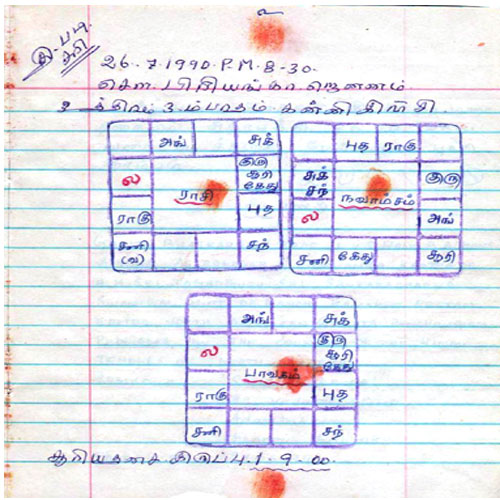 உ
26.7.1990. P.M. 8-30.
சௌ. பிரியங்கா ஜெனனம்.
உத்திரம் 3 ம்பாதம் கன்னி
அங் சுக்
ல குரு சூரி கேது
ராசி
ராகு புத
சனி (வ) சந்
புத ராகு
சுக் சந் குரு
நவாம்சம்
ல அங்
சனி கேது சூரி
அங் சுக்
ல குரு சூரி கேது
பாவகம்
ராகு புத
சனி சந்
சூரியதசை இருப்பு. 1-9-00.